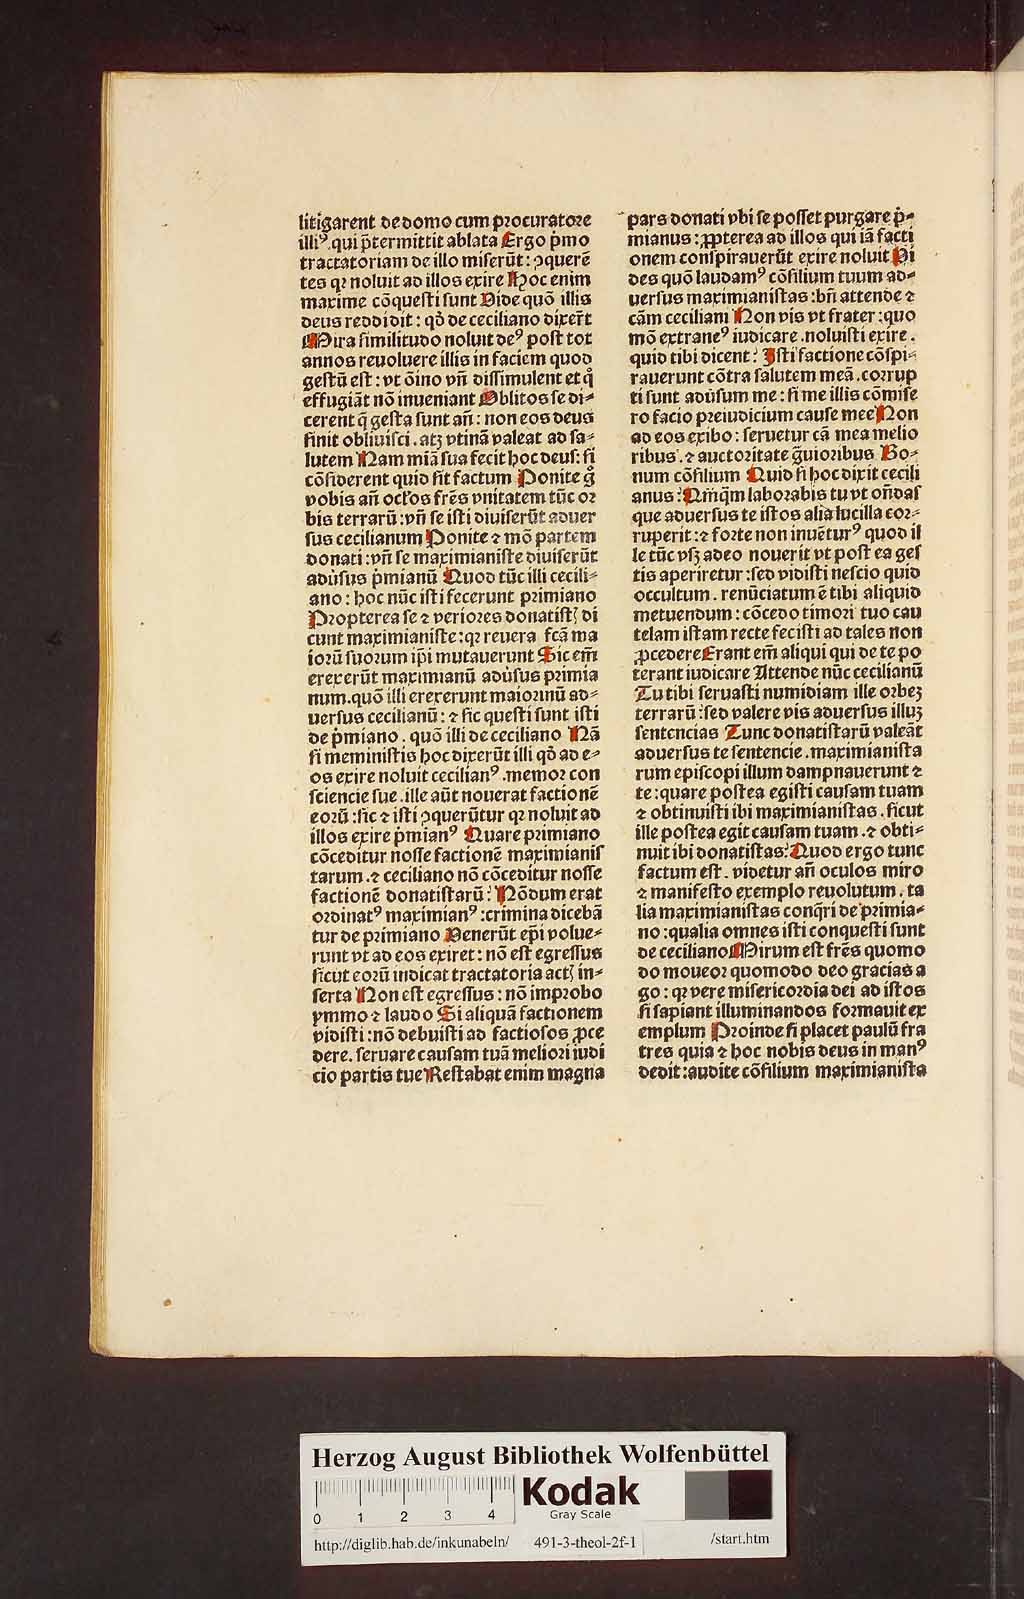 litigarent de domo cum procuratore
illiꝰ.qui p̄termittit ablata Ergo p̄mo
tractatoriam de illo miserūt: ꝯquerē
tes qꝛ noluit ad illos exire Hoc enim
maxime cōquesti sunt Vide quō illis
deus reddidit: qd̓ de ceciliano dixer̄t
Mira similitudo noluit deꝰ post tot
annos reuoluere illis in faciem quod
gestū est: vt oīno vn̄ dissimulent et qͦ
effugiāt nō inueniant Oblitos se di-
cerent q̄ gesta sunt an̄: non eos deus
sinit obliuisci. atꝫ vtinā valeat ad sa-
lutem Nam miā sua fecit hoc deus: si
cōsiderent quid sit factum Ponite gͦ
vobis an̄ ocl̓os fr̄es vnitatem tūc or
bis terrarū: vn̄ se isti diuiserūt aduer
sus cecilianum Ponite ⁊ mō partem
donati: vn̄ se maximianiste diuiserūt
adu̓sus p̄mianū Quod tūc illi cecili-
ano: hoc nūc isti fecerunt primiano
Propterea se ⁊ veriores donatistꝫ di
cunt maximianiste: qꝛ reuera fcā ma
iorū suorum ip̄i mutauerunt Sic em̄
erexerūt maximianū adu̓sus primia
num.quō illi erexerunt maiorinū ad-
uersus cecilianū: ⁊ sic questi sunt isti
de p̄miano. quō illi de ceciliano Nā
si meministis hoc dixerūt illi qd̓ ad e-
os exire noluit cecilianꝰ.memor con
sciencie sue. ille aūt nouerat factionē
eorū: sic ⁊ isti ꝯquerūtur qꝛ noluit ad
illos exire p̄mianꝰ Quare primiano
cōceditur nosse factionē maximianis
tarum. ⁊ ceciliano nō cōceditur nosse
factionē donatistarū: Nōdum erat
ordinatꝰ maximianꝰ: crimina dicebā
tur de primiano Venerūt ep̄i volue-
runt vt ad eos exiret: nō est egressus
sicut eorū indicat tractatoria actꝫ in-
serta Non est egressus: nō improbo
ymmo ⁊ laudo Si aliquā factionem
vidisti: nō debuisti ad factiosos ꝓce
dere. seruare causam tuā meliori iudi
cio partis tue Restabat enim magna
pars donati vbi se posset purgare p̄-
mianus: ꝓpterea ad illos qui iā facti
onem conspirauerūt exire noluit Vi
des quō laudamꝰ cōsilium tuum ad-
uersus maximianistas: bn̄ attende ⁊
cām ceciliani Non vis vt frater: quo
mō extraneꝰ iudicare. noluisti exire.
quid tibi dicent: Isti factione cōspi-
rauerunt cōtra salutem meā. corrup
ti sunt adu̓sum me: si me illis cōmise
ro facio preiudicium cause mee Non
ad eos exibo: seruetur cā mea melio
ribus. ⁊ auctoritate g̃uioribus Bo-
num cōsilium Quid si hoc dixit cecili
anus: Nm̄qm̄ laborabis tu vt on̄das
que aduersus te istos alia lucilla cor-
ruperit: ⁊ forte non inuēturꝰ quod il
le tūc vsꝫ adeo nouerit vt post ea ges
tis aperiretur: sed vidisti nescio quid
occultum. renūciatum ē tibi aliquid
metuendum: cōcedo timori tuo cau
telam istam recte fecisti ad tales non
ꝓcedere Erant em̄ aliqui qui de te po
terant iudicare Attende nūc cecilianū
Tu tibi seruasti numidiam ille orbeꝫ
terrarū: sed valere vis aduersus illuꝫ
sentencias Tunc donatistarū valeāt
aduersus te sentencie. maximianista
rum episcopi illum dampnauerunt ⁊
te: quare postea egisti causam tuam
⁊ obtinuisti ibi maximianistas. sicut
ille postea egit causam tuam. ⁊ obti-
nuit ibi donatistas: Quod ergo tunc
factum est. videtur an̄ oculos miro
⁊ manifesto exemplo reuolutum. ta
lia maximianistas conq̄ri de primia-
no: qualia omnes isti conquesti sunt
de ceciliano Mirum est fr̄es quomo
do moueor quomodo deo gracias a
go: qꝛ vere misericordia dei ad istos
si sapiant illuminandos formauit ex
emplum Proinde si placet paulū fra
tres quia ⁊ hoc nobis deus in manꝰ
dedit: audite cōsilium maximianista
Herzog August Bibliothek Wolfenbüttel
0 1 2 3 4
Kodak
Gray Scale
http://diglib.hab.de/inkunabeln/ 491-3-theol-2f-1 /start.htm